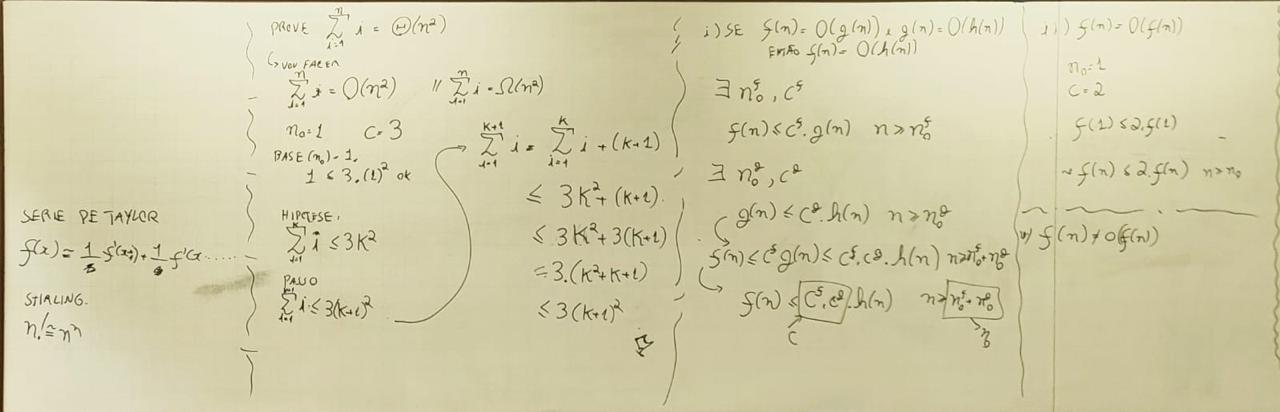 SERIE DE TAYLOR
STIRLING.
n! ≅ nⁿ
PROVE \sum_{i=1}^{n} i = Θ(n²)
↳ VOU FAZER
\sum_{i=1}^{n} i = O(n²) // \sum_{i=1}^{n} i = Ω(n²)
n₀=1 C=3
BASE (n₀) = 1.
1 ≤ 3.(1)² ok
HIPOTESE.
\sum_{i=1}^{k} i ≤ 3K²
PASSO
\sum_{i=1}^{k+1} i ≤ 3(K+1)²
\sum_{i=1}^{K+1} i = \sum_{i=1}^{K} i + (K+1)
≤ 3K² + (K+1).
≤ 3K² + 3(K+1)
= 3.(K²+K+1)
≤ 3(K+1)²
i) SE f(n) = O(g(n)) e g(n) = O(h(n))
ENTÃO f(n) = O(h(n))
∃ n₀ᶠ, Cᶠ
f(n) ≤ Cᶠ.g(n) n ≥ n₀ᶠ
∃ n₀ᵍ, Cᵍ
g(n) ≤ Cᵍ.h(n) n ≥ n₀ᵍ
f(n) ≤ Cᶠ g(n) ≤ Cᶠ.Cᵍ.h(n) n ≥ n₀ᶠ + n₀ᵍ
f(n) ≤ Cᶠ.Cᵍ.h(n) n ≥ n₀ᶠ + n₀ᵍ
C n₀
ii) f(n) = O(f(n))
n₀=1
C=2
f(1) ≤ 2.f(1)
f(n) ≤ 2.f(n) n ≥ n₀
f(n) ≠ o(f(n))